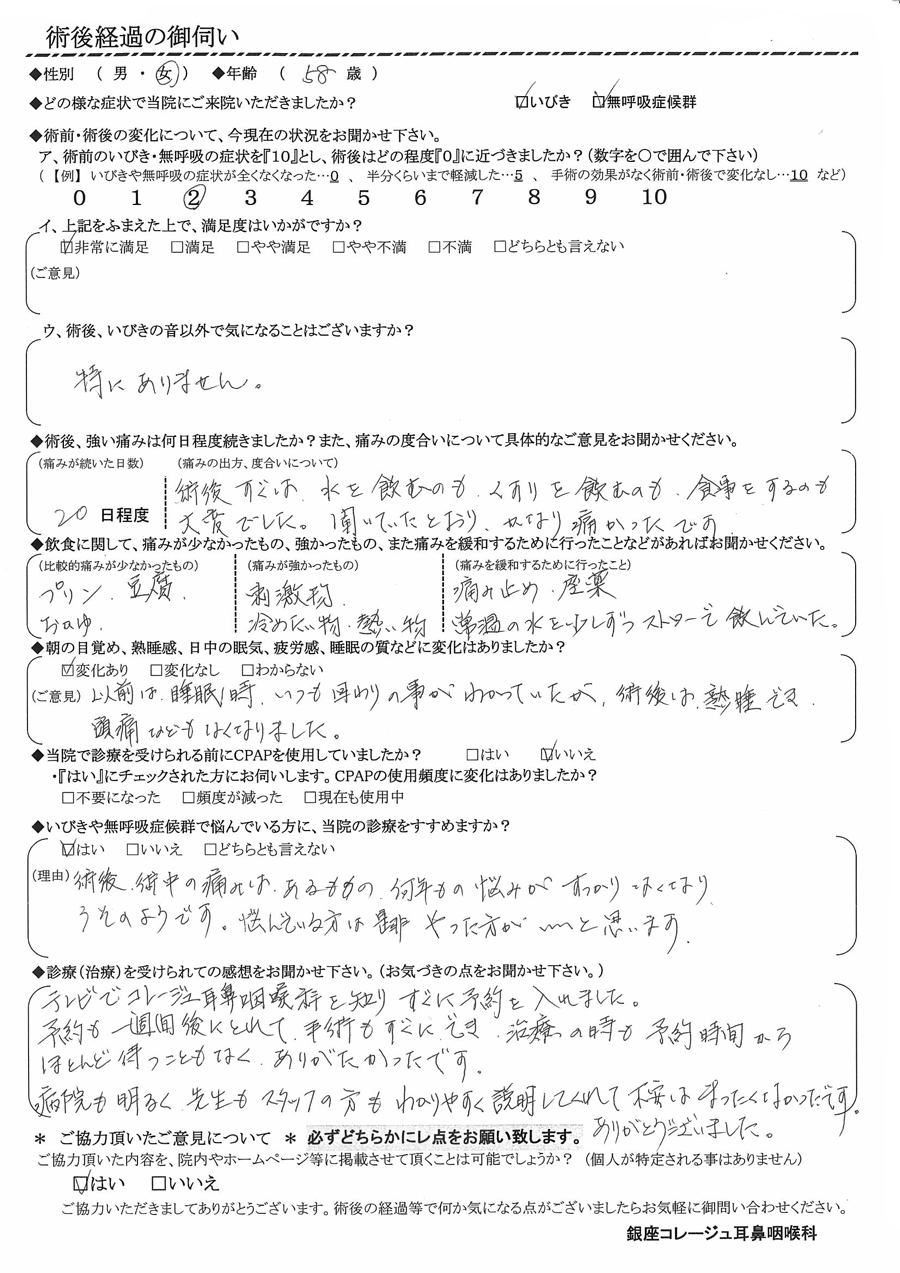 術後経過の御伺い
◆性別 ( 男 ・ 女 ) ◆年齢 ( 58 歳 )
◆どの様な症状で当院にご来院いただきましたか? ☑いびき ☑無呼吸症候群
◆術前・術後の変化について、今現在の状況をお聞かせ下さい。
ア、術前のいびき・無呼吸の症状を『10』とし、術後はどの程度『0』に近づきましたか?(数字を〇で囲んで下さい)
(【例】いびきや無呼吸の症状が全くなくなった…0 、 半分くらいまで軽減した…5 、 手術の効果がなく術前・術後で変化なし…10 など)
0 1 2 3 4 5 6 7 8 9 10
イ、上記をふまえた上で、満足度はいかがですか?
☑非常に満足 □満足 □やや満足 □やや不満 □不満 □どちらとも言えない
(ご意見)
ウ、術後、いびきの音以外で気になることはございますか?
特にありません。
◆術後、強い痛みは何日程度続きましたか?また、痛みの度合いについて具体的なご意見をお聞かせください。
(痛みが続いた日数) (痛みの出方、度合いについて)
術後すぐは、水を飲むのも、くすりを飲むのも、食事をするのも
20 日程度 大変でした。聞いていたとおり、かなり痛かったです
◆飲食に関して、痛みが少なかったもの、強かったもの、また痛みを緩和するために行ったことなどがあればお聞かせください。
(比較的痛みが少なかったもの) (痛みが強かったもの) (痛みを緩和するために行ったこと)
プリン、豆腐、 刺激物、 痛み止め、座薬
おかゆ、 冷めたい物・熱い物 常温の水を少しずつストローで飲んでいた。
◆朝の目覚め、熟睡感、日中の眠気、疲労感、睡眠の質などに変化はありましたか?
☑変化あり □変化なし □わからない
(ご意見) 以前は、睡眠時、いつも耳わりの事がわかっていたが、術後は、熟睡でき、
頭痛などもなくなりました。
◆当院で診療を受けられる前にCPAPを使用していましたか? □はい ☑いいえ
・『はい』にチェックされた方にお伺いします。CPAPの使用頻度に変化はありましたか?
□不要になった □頻度が減った □現在も使用中
◆いびきや無呼吸症候群で悩んでいる方に、当院の診療をすすめますか?
☑はい □いいえ □どちらとも言えない
(理由) 術後、術中の痛みは、あるものの、何年もの悩みがすっかりなくなり
うそのようです。悩んでいる方は是非やった方がいいと思います、
◆診療(治療)を受けられての感想をお聞かせ下さい。(お気づきの点をお聞かせ下さい。)
テレビでコレージュ耳鼻咽喉科を知りすぐに予約を入れました。
予約も一週間後にとれて、手術もすぐにでき、治療の時も予約時間から
ほとんど待つこともなく、ありがたかったです。
病院も明るく、先生もスタッフの方もわかりやすく説明してくれて不安はまったくなかったです。
ありがとうございました。
* ご協力頂いたご意見について * 必ずどちらかにレ点をお願い致します。
ご協力頂いた内容を、院内やホームページ等に掲載させて頂くことは可能でしょうか? (個人が特定される事はありません)
☑はい □いいえ
ご協力いただきましてありがとうございます。術後の経過等で何か気になる点がございましたらお気軽に御問い合わせください。
銀座コレージュ耳鼻咽喉科